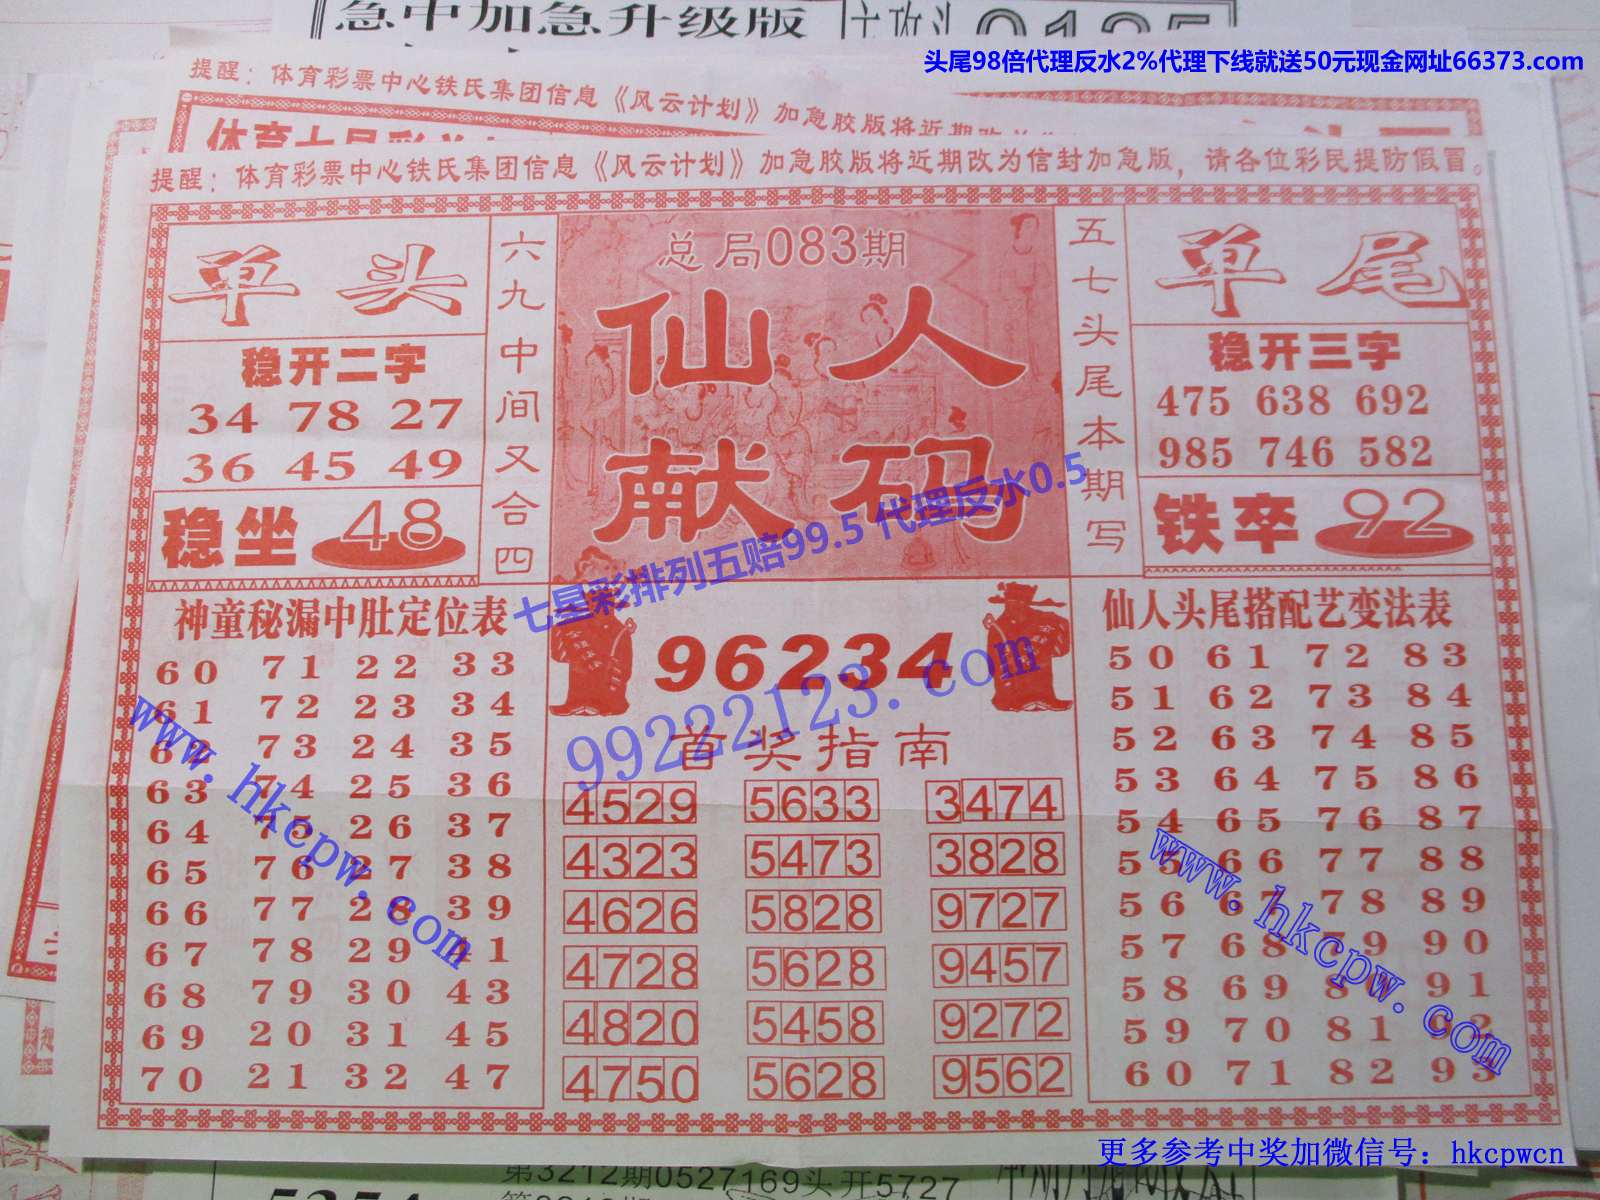 急中加急升级版
头尾98倍代理反水2%代理下线就送50元现金网址66373.com
提醒：体育彩票中心铁氏集团信息《风云计划》加急胶版将近期改
提醒：体育彩票中心铁氏集团信息《风云计划》加急胶版将近期改为信封加急版，请各位彩民提防假冒。
单头
稳开二字
34 78 27
36 45 49
稳坐 48
六九中间又合四
总局083期
仙人
献码
五七头尾本期写
单尾
稳开三字
475 638 692
985 746 582
铁卒 92
七星彩排列五赔99.5 代理反水0.5
99222123.com
神童秘漏中肚定位表
60 71 22 33
61 72 23 34
62 73 24 35
63 74 25 36
64 75 26 37
65 76 27 38
66 77 28 39
67 78 29 41
68 79 30 43
69 20 31 45
70 21 32 47
www.hkcpw.com
96234
首奖指南
4529 5633 3474
4323 5473 3828
4626 5828 9727
4728 5628 9457
4820 5458 9272
4750 5628 9562
仙人头尾搭配艺变法表
50 61 72 83
51 62 73 84
52 63 74 85
53 64 75 86
54 65 76 87
55 66 77 88
56 67 78 89
57 68 79 90
58 69 80 91
59 70 81 92
60 71 82 93
www.hkcpw.com
更多参考中奖加微信号：hkcpwcn
第3212期0527169头开5727